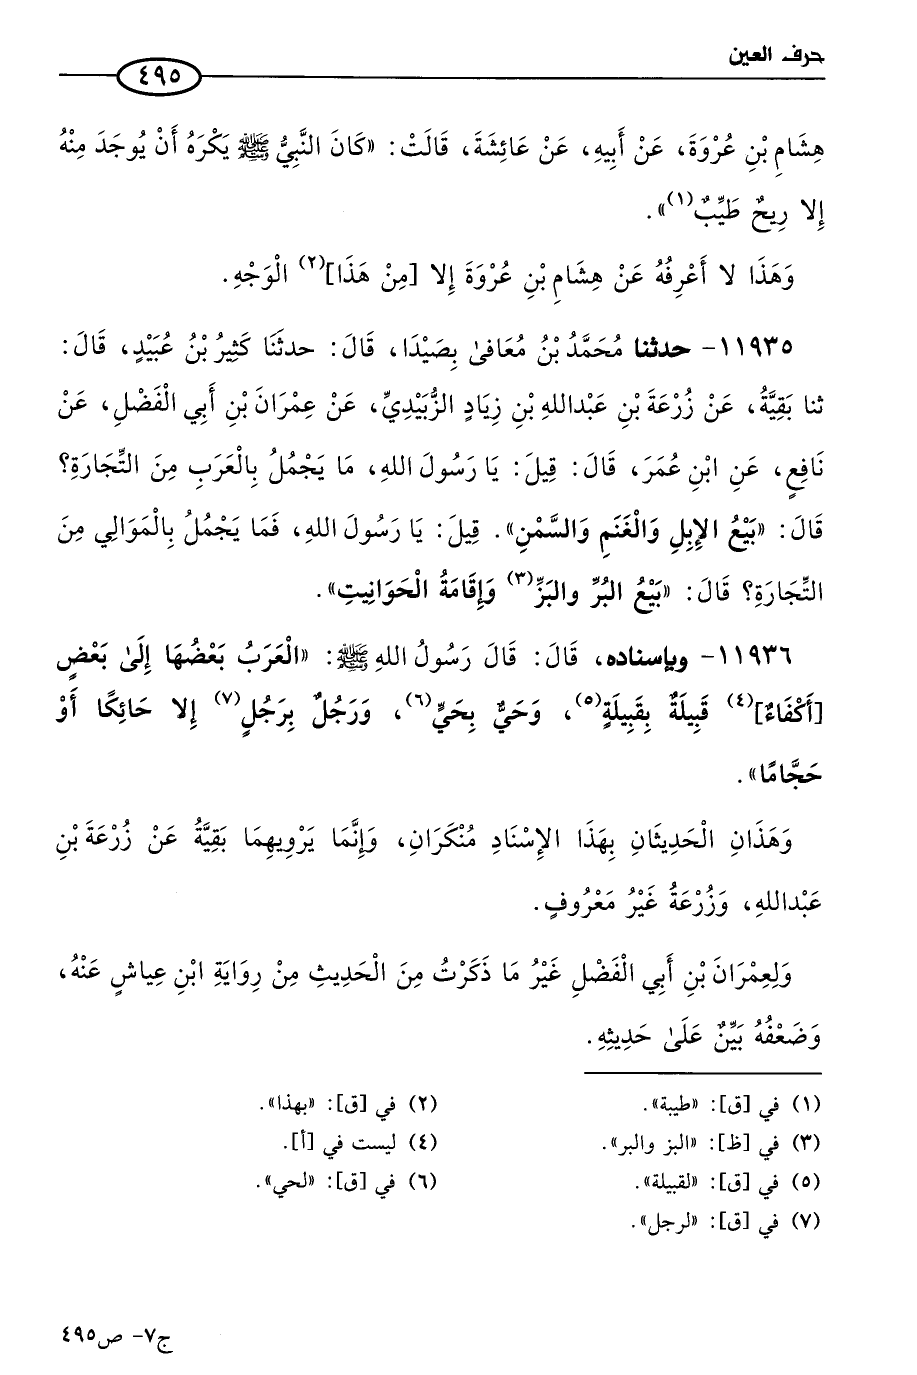 حرف العين
٤٩٥
هِشَامِ بْنِ عُرْوَةَ، عَنْ أَبِيهِ، عَنْ عَائِشَةَ، قَالَتْ: «كَانَ النَّبِيُّ ﷺ يَكْرَهُ أَنْ يُوجَدَ مِنْهُ
إِلا رِيحٌ طَيِّبٌ(١)».
وَهَذَا لا أَعْرِفُهُ عَنْ هِشَامِ بْنِ عُرْوَةَ إِلا [مِنْ هَذَا](٢) الْوَجْهِ.
١١٩٣٥- حدثنا مُحَمَّدُ بْنُ مُعَافىٰ بِصَيْدَا، قَالَ: حدثَنَا كَثِيرُ بْنُ عُبَيْدٍ، قَالَ:
ثنا بَقِيَّةُ، عَنْ زُرْعَةَ بْنِ عَبْداللهِ بْنِ زِيَادٍ الزُّبَيْدِيِّ، عَنْ عِمْرَانَ بْنِ أَبِي الْفَضْلِ، عَنْ
نَافِعٍ، عَنِ ابْنِ عُمَرَ، قَالَ: قِيلَ: يَا رَسُولَ اللهِ، مَا يَجْمُلُ بِالْعَرَبِ مِنَ التِّجَارَةِ؟
قَالَ: «بَيْعُ الإِبِلِ وَالْغَنَمِ وَالسَّمْنِ». قِيلَ: يَا رَسُولَ اللهِ، فَمَا يَجْمُلُ بِالْمَوَالِي مِنَ
التِّجَارَةِ؟ قَالَ: «بَيْعُ البُرِّ والبَزِّ(٣) وَإِقَامَةُ الْحَوَانِيتِ».
١١٩٣٦- وبإسناده، قَالَ: قَالَ رَسُولُ اللهِ ﷺ: «الْعَرَبُ بَعْضُهَا إِلَىٰ بَعْضٍ
[أَكْفَاءٌ](٤) قَبِيلَةٌ بِقَبِيلَةٍ(٥)، وَحَيٌّ بِحَيٍّ(٦)، وَرَجُلٌ بِرَجُلٍ(٧) إِلا حَائِكًا أَوْ
حَجَّامًا».
وَهَذَانِ الْحَدِيثَانِ بِهَذَا الإِسْنَادِ مُنْكَرَانِ، وَإِنَّمَا يَرْوِيهِمَا بَقِيَّةُ عَنْ زُرْعَةَ بْنِ
عَبْداللهِ، وَزُرْعَةُ غَيْرُ مَعْرُوفٍ.
وَلِعِمْرَانَ بْنِ أَبِي الْفَضْلِ غَيْرُ مَا ذَكَرْتُ مِنَ الْحَدِيثِ مِنْ رِوَايَةِ ابْنِ عِياشٍ عَنْهُ،
وَضَعْفُهُ بَيِّنٌ عَلَىٰ حَدِيثِهِ.
(١) في [ق]: «طيبة».
(٢) في [ق]: «بهذا».
(٣) في [ظ]: «البز والبر».
(٤) ليست في [أ].
(٥) في [ق]: «لقبيلة».
(٦) في [ق]: «لحي».
(٧) في [ق]: «لرجل».
ج٧- ص٤٩٥